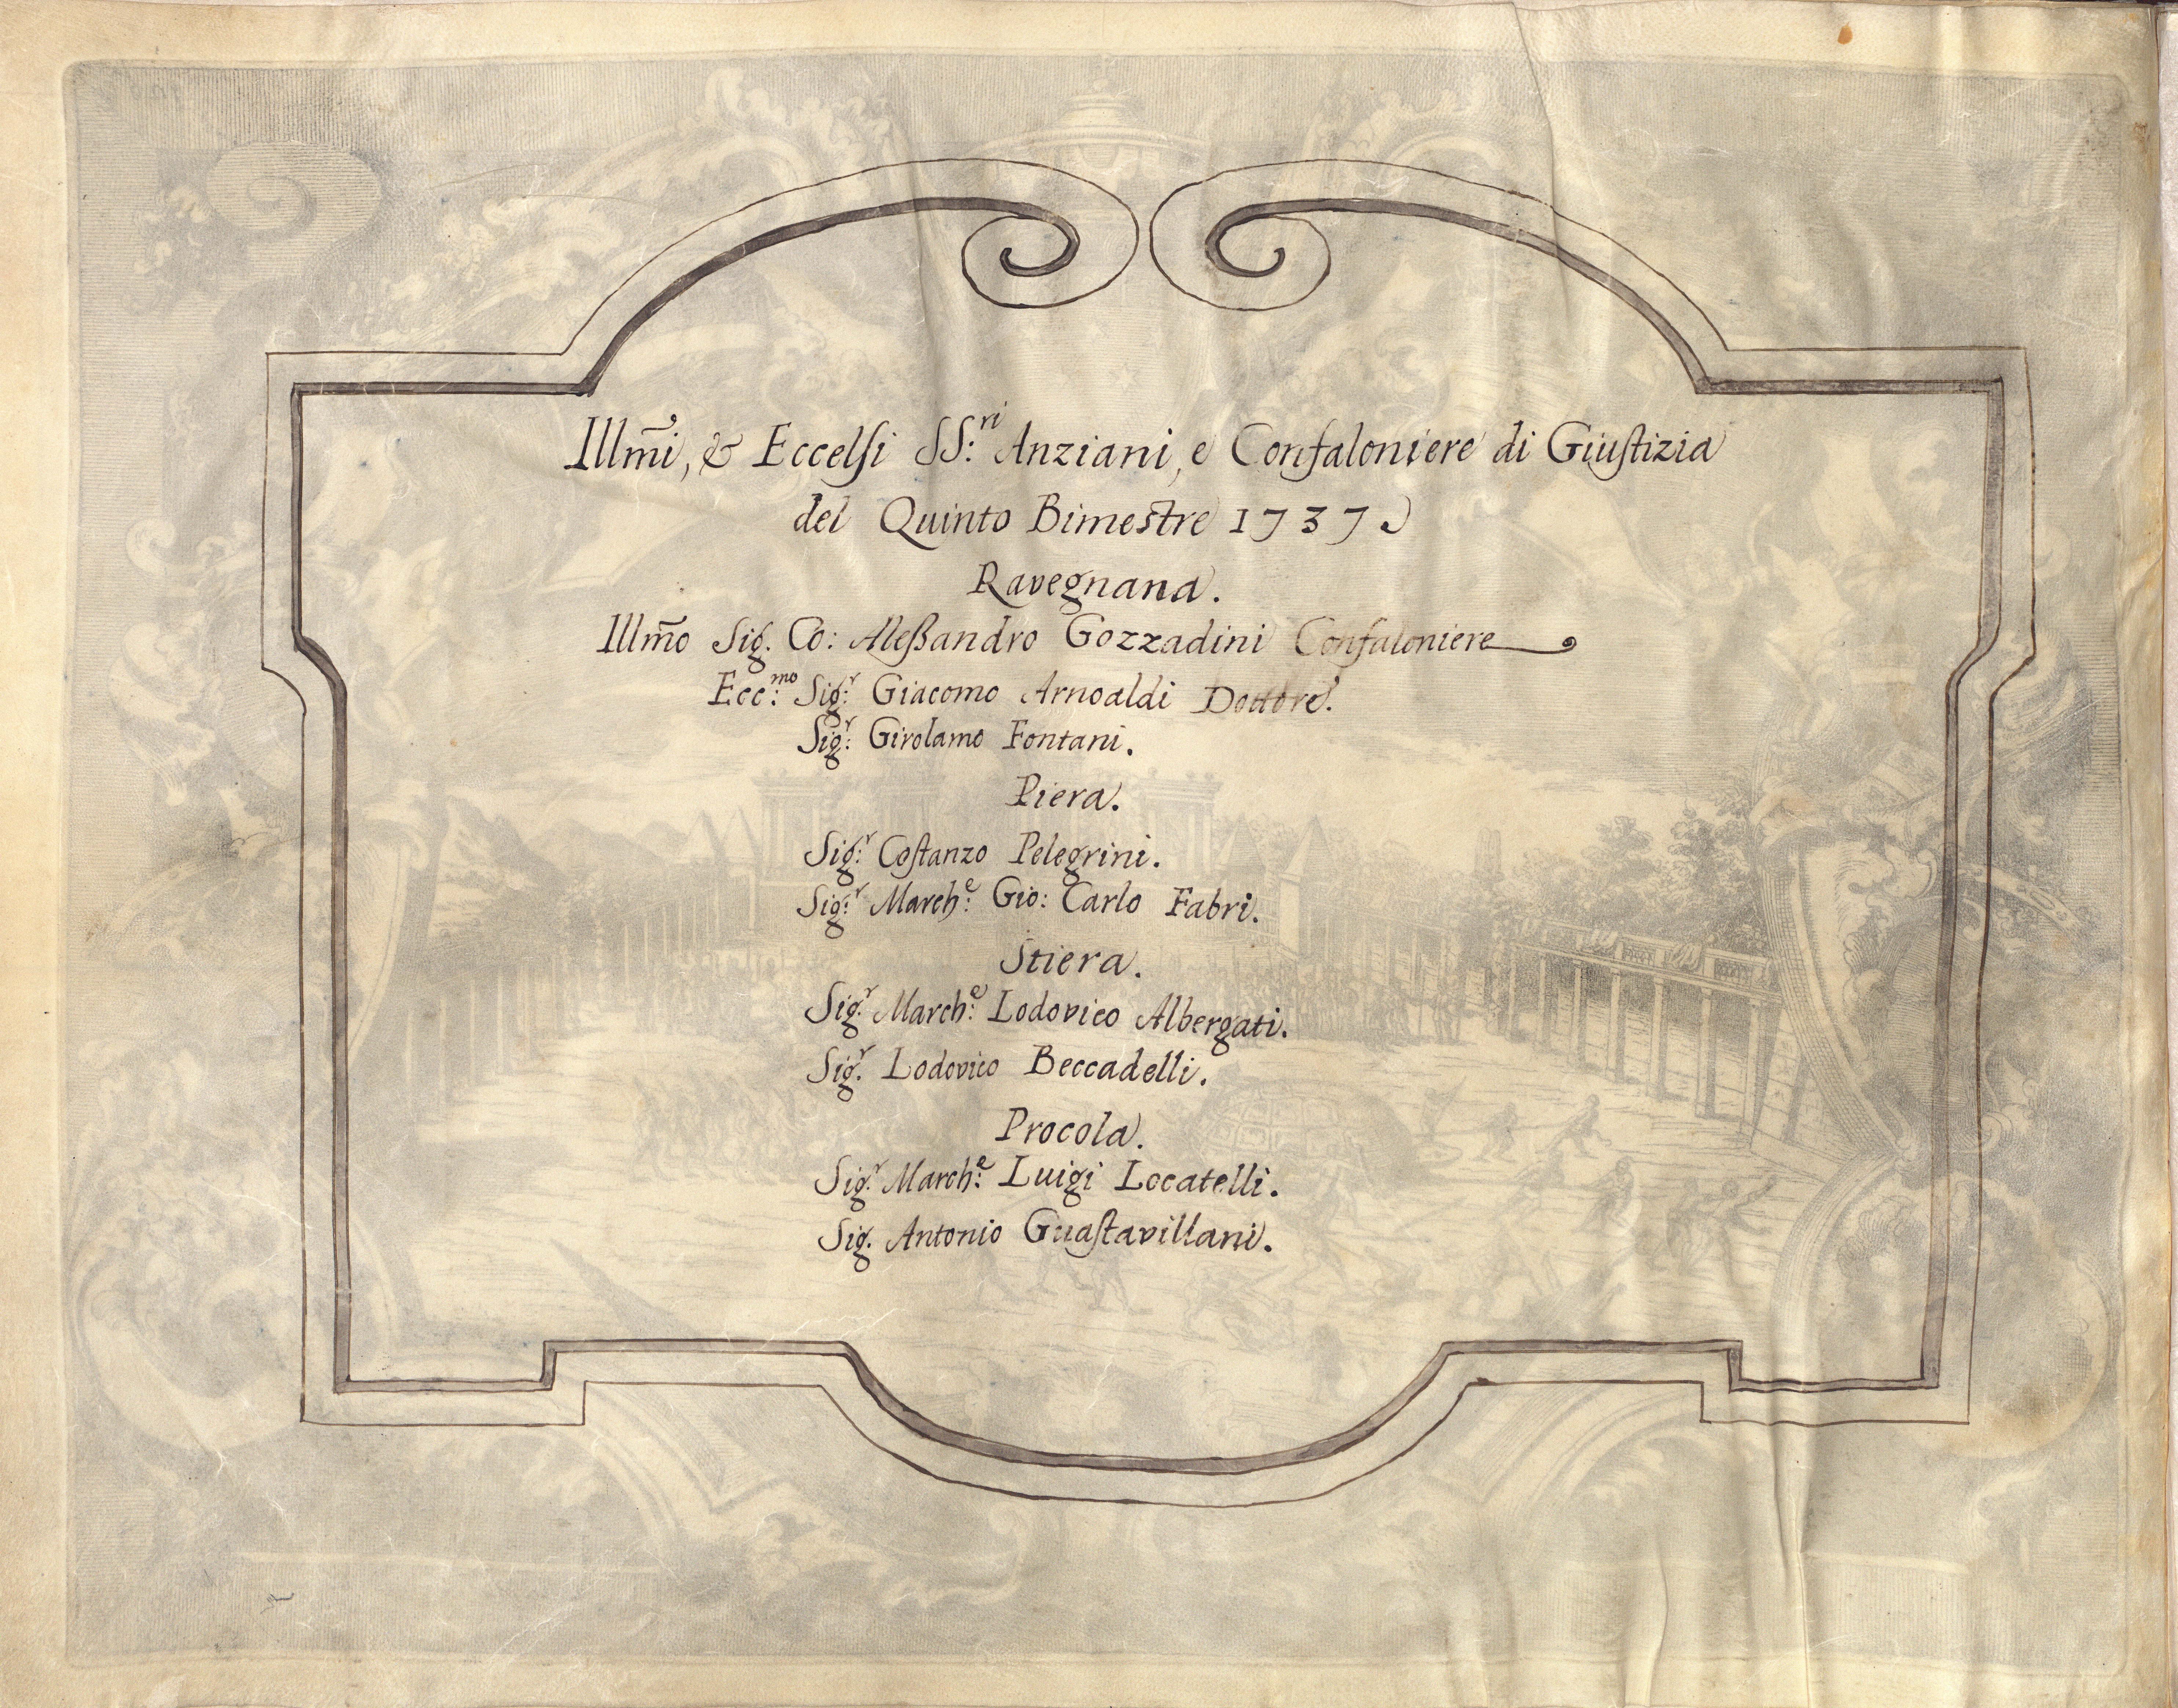 Illm̃i, & Eccelsi SS:ri Anziani, e Confaloniere di Giustizia
del Quinto Bimestre 1737
Ravegnana.
Illm̃o Sig. Co: Aleßandro Gozzadini Confaloniere
Ecc:mo Sig:r Giacomo Arnoaldi Dottore.
Sig:r Girolamo Fontani.
Piera.
Sig:r Costanzo Pelegrini.
Sig:r March:e Gio: Carlo Fabri.
Stiera.
Sig:r March:e Lodovico Albergati.
Sig.r Lodovico Beccadelli.
Procola.
Sig:r March:e Luigi Locatelli.
Sig. Antonio Guastavillani.